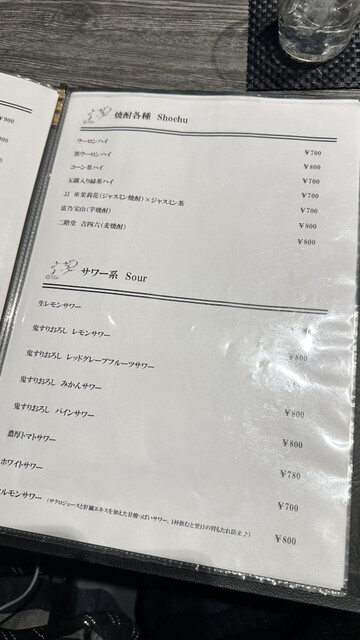 ¥900
焼酎各種 Shochu
ウーロンハイ ¥700
黒ウーロンハイ ¥800
コーン茶ハイ ¥700
玉露入り緑茶ハイ ¥700
JJ 茉莉花(ジャスミン焼酎)×ジャスミン茶 ¥800
富乃宝山(芋焼酎) ¥800
二階堂 吉四六(麦焼酎)
サワー系 Sour
生レモンサワー
鬼すりおろし レモンサワー ¥800
鬼すりおろし レッドグレープフルーツサワー
鬼すりおろし みかんサワー ¥800
鬼すりおろし パインサワー ¥800
濃厚トマトサワー ¥780
ホワイトサワー ¥700
ルモンサワー (ザクロジュースと肝臓エキスを加えた甘酸っぱいサワー、1杯飲むと翌日の胃もたれ防止♪) ¥800